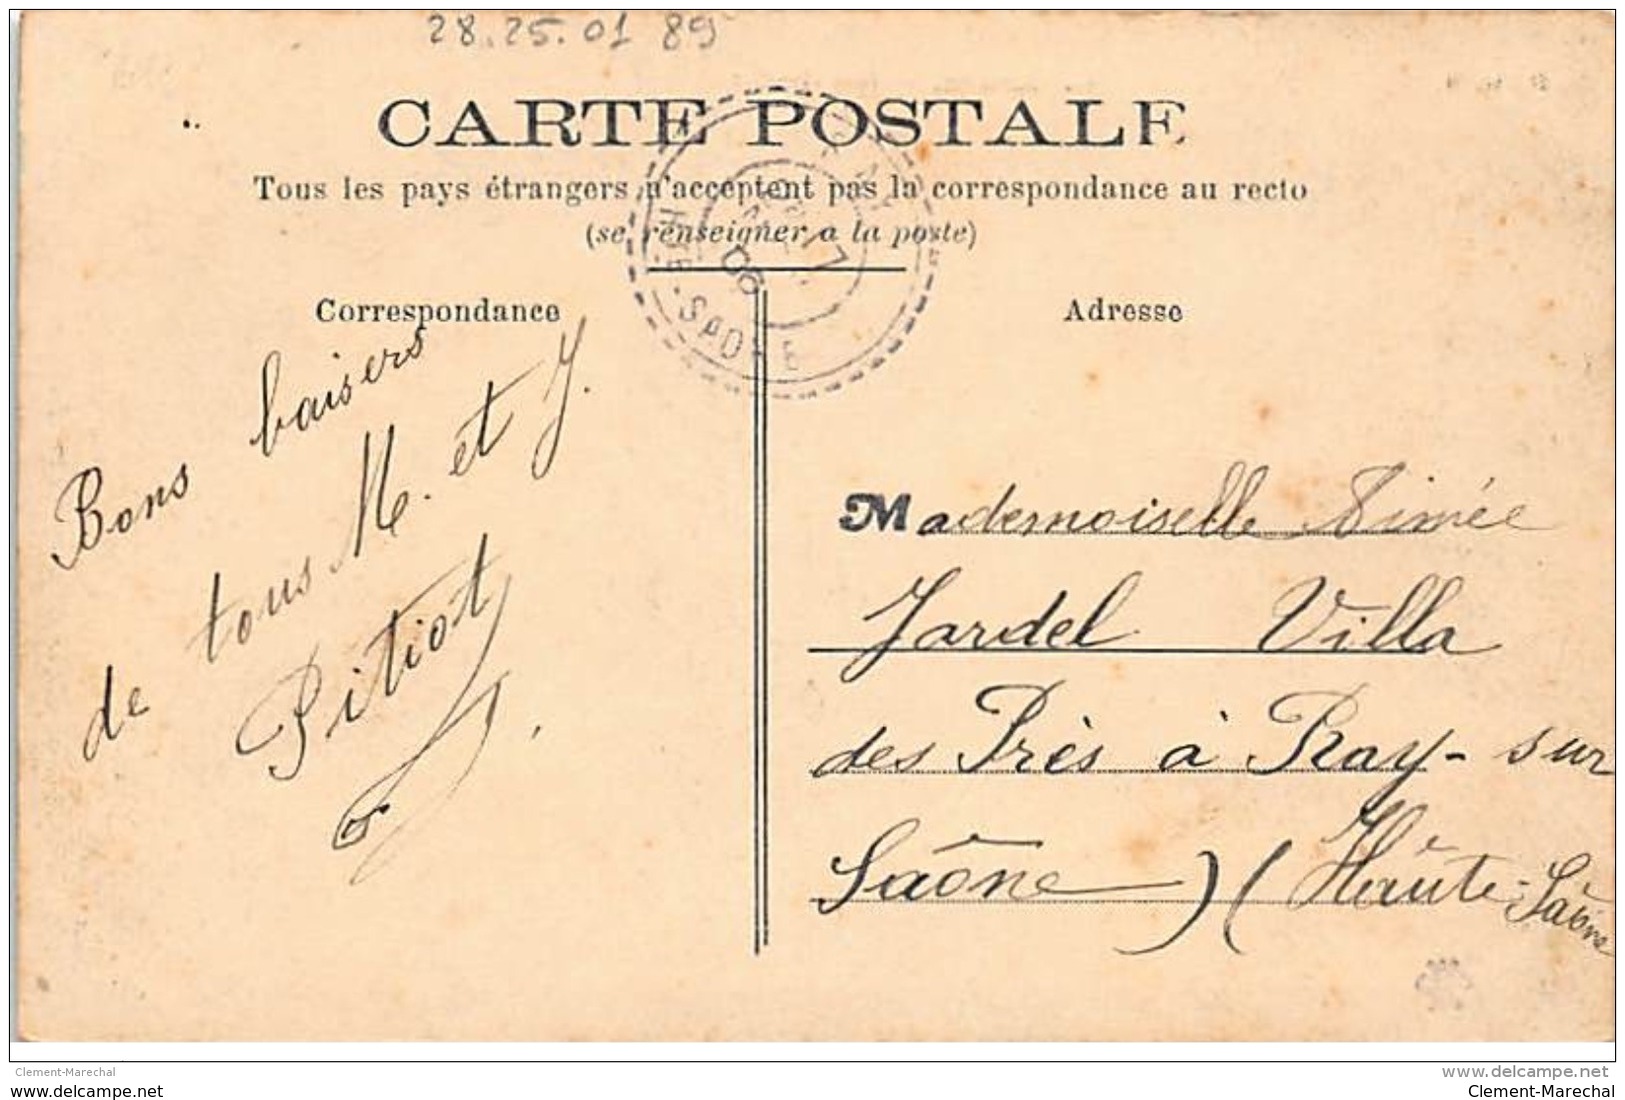 28.25.01 89
CARTE POSTALE
Tous les pays étrangers n'acceptent pas la correspondance au recto
(se renseigner a la poste)
HTE-SAONE
17
06
Correspondance
Bons baisers
de tous M. et J.
Pitiot
Adresse
Mademoiselle Aimée
Jardel Villa
des Près à Ray-sur
Saône) (Haûte-Saône
Clement-Marechal
delcampe.net
www.delcampe.net
Clement-Marechal